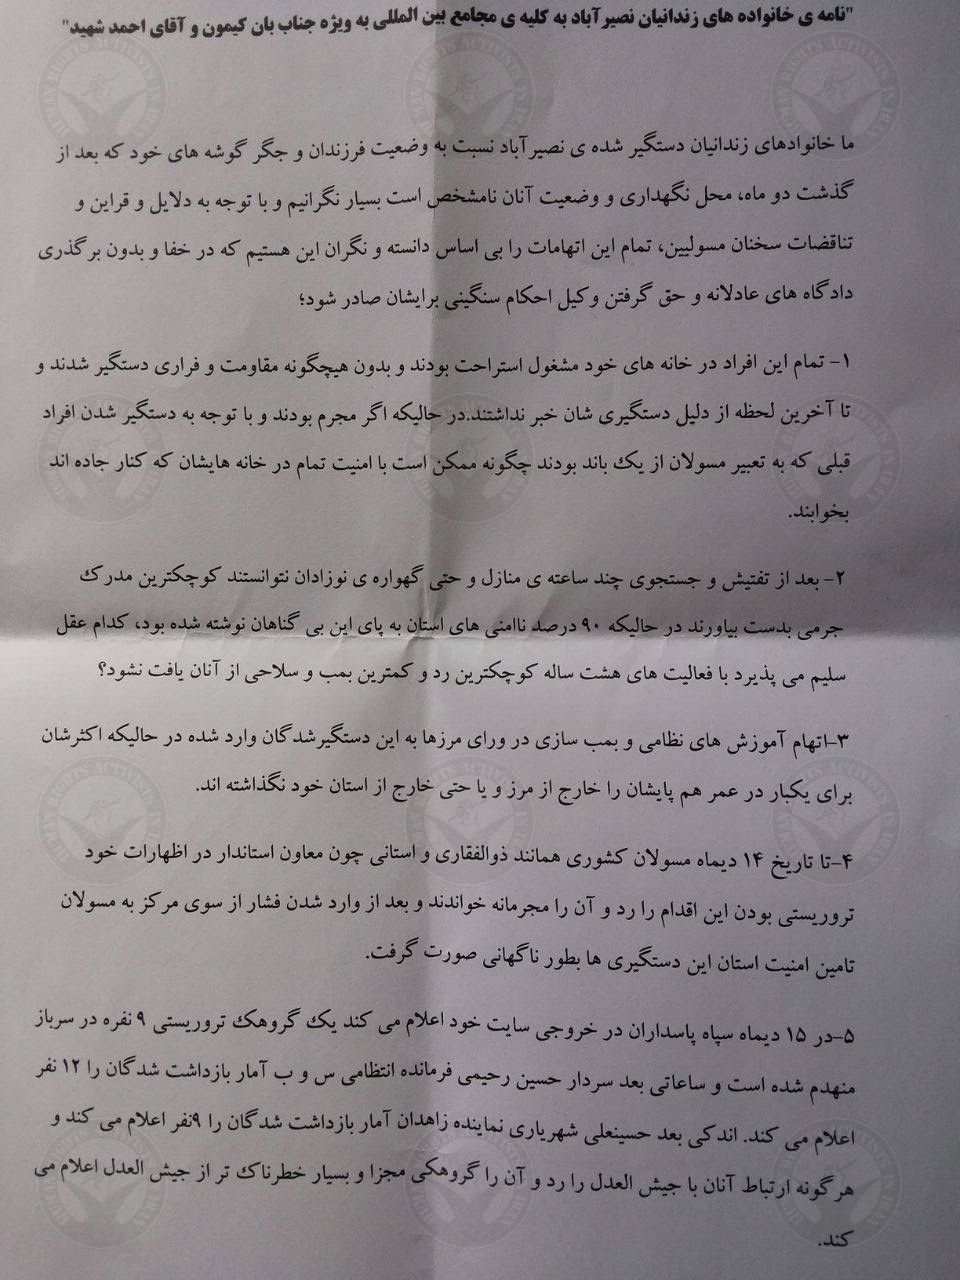 "نامه ی خانواده های زندانیان نصیرآباد به کلیه ی مجامع بین المللی به ویژه جناب بان کیمون و آقای احمد شهید"
ما خانوادهای زندانیان دستگیر شده ی نصیرآباد نسبت به وضعیت فرزندان و جگر گوشه های خود که بعد از
گذشت دو ماه، محل نگهداری و وضعیت آنان نامشخص است بسیار نگرانیم و با توجه به دلایل و قراین و
تناقضات سخنان مسولیین، تمام این اتهامات را بی اساس دانسته و نگران این هستیم که در خفا و بدون برگذری
دادگاه های عادلانه و حق گرفتن وکیل احکام سنگینی برایشان صادر شود؛
۱- تمام این افراد در خانه های خود مشغول استراحت بودند و بدون هیچگونه مقاومت و فراری دستگیر شدند و
تا آخرین لحظه از دلیل دستگیری شان خبر نداشتند.در حالیکه اگر مجرم بودند و با توجه به دستگیر شدن افراد
قبلی که به تعبیر مسولان از یک باند بودند چگونه ممکن است با امنیت تمام در خانه هایشان که کنار جاده اند
بخوابند.
۲- بعد از تفتیش و جستجوی چند ساعته ی منازل و حتی گهواره ی نوزادان نتوانستند کوچکترین مدرک
جرمی بدست بیاورند در حالیکه ۹۰ درصد ناامنی های استان به پای این بی گناهان نوشته شده بود، کدام عقل
سلیم می پذیرد با فعالیت های هشت ساله کوچکترین رد و کمترین بمب و سلاحی از آنان یافت نشود؟
۳-اتهام آموزش های نظامی و بمب سازی در ورای مرزها به این دستگیرشدگان وارد شده در حالیکه اکثرشان
برای یکبار در عمر هم پایشان را خارج از مرز و یا حتی خارج از استان خود نگذاشته اند.
۴-تا تاریخ ۱۴ دیماه مسولان کشوری همانند ذوالفقاری و استانی چون معاون استاندار در اظهارات خود
تروریستی بودن این اقدام را رد و آن را مجرمانه خواندند و بعد از وارد شدن فشار از سوی مرکز به مسولان
تامین امنیت استان این دستگیری ها بطور ناگهانی صورت گرفت.
۵-در ۱۵ دیماه سپاه پاسداران در خروجی سایت خود اعلام می کند یک گروهک تروریستی ۹ نفره در سرباز
منهدم شده است و ساعاتی بعد سردار حسین رحیمی فرمانده انتظامی س و ب آمار بازداشت شدگان را ۱۲ نفر
اعلام می کند. اندکی بعد حسینعلی شهریاری نماینده زاهدان آمار بازداشت شدگان را ۹نفر اعلام می کند و
هرگونه ارتباط آنان با جیش العدل را رد و آن را گروهکی مجزا و بسیار خطرناک تر از جیش العدل اعلام می
کند.
HUMAN RIGHTS ACTIVISTS IN IRAN